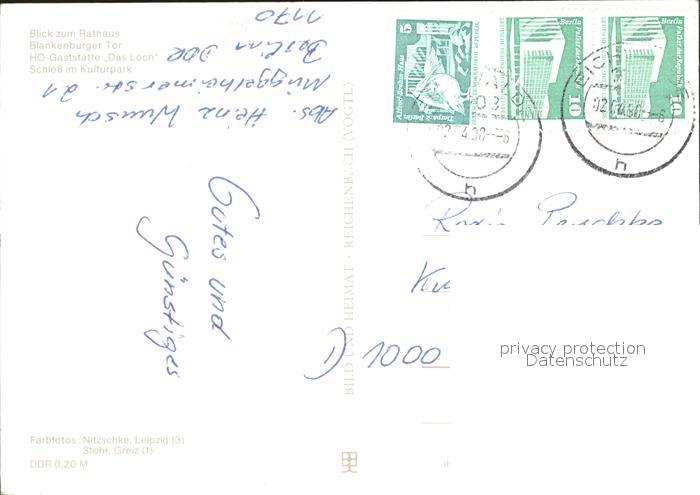 Blick zum Rathaus
Blankenburger Tor
HO-Gaststätte „Das Loch"
Schloß im Kulturpark
Abs. Heinz Wunsch
Müggelheimerstr. 21
Berlin DDR
1170
Gutes und
Günstiges
BILD UND HEIMAT · REICHENBACH (VOGTL)
5
Alfred-Brehm-Haus
Tierpark Berlin
10
Berlin
Palast der Republik
10
Berlin
Palast der Republik
h
h
1) 1000
privacy protection
Datenschutz
Farbfotos: Nitzschke, Leipzig (3)
Stöhr, Greiz (1)
DDR 0,20 M